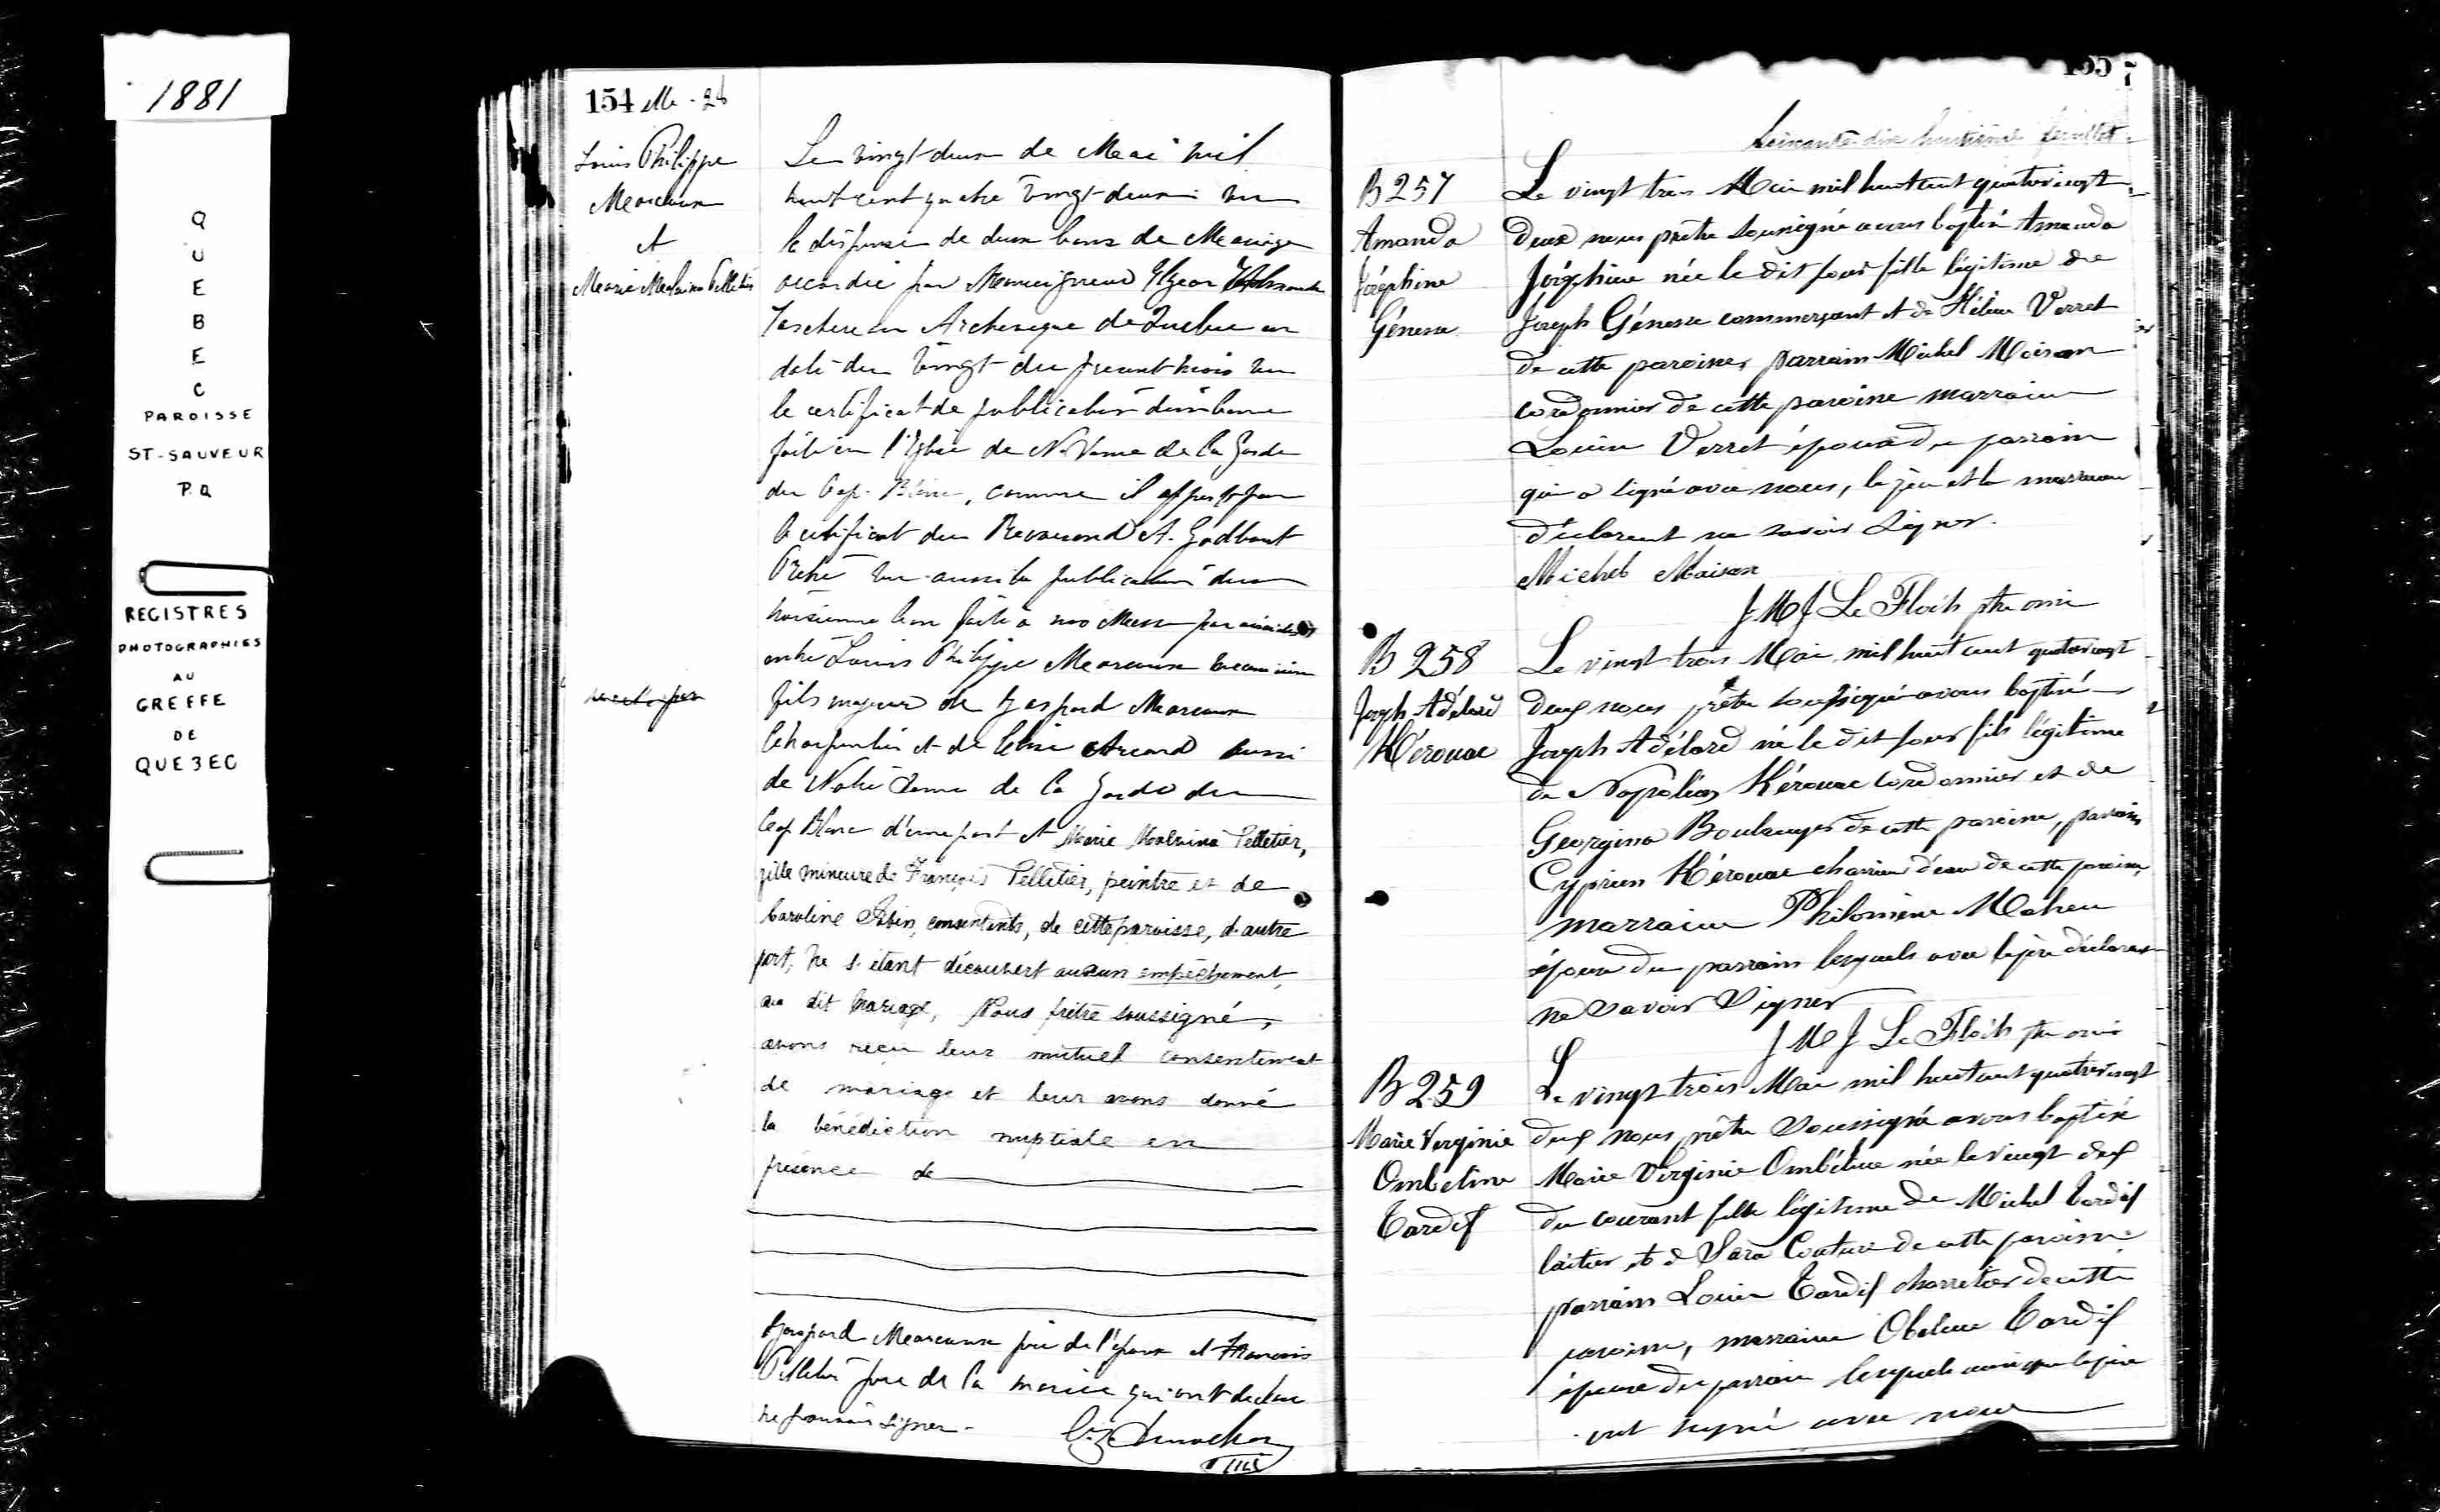 1881
Q
U
E
B
E
C
PAROISSE
ST-SAUVEUR
P.Q
REGISTRES
PHOTOGRAPHIES
AU
GREFFE
DE
QUEBEC
154 M - 26
Louis Philippe
Marceaux
et
Marie Malvina Pelletier
Le vingt-deux de Mai mil
huit cent quatre vingt-deux vu
la dispense de deux bans de Mariage
accordée par Monseigneur Elzear Alexandre
Taschereau Archevêque de Quebec en
date du vingt du present mois vu
le certificat de publication d'un ban
faite en l'Eglise de N. Dame de la Garde
du Cap-Blanc, comme il appert par
le certificat du Reverend A. Godbout
Prêtre vu aussi la publication d'un
troisieme ban faite à nos Messes paroissiales
entre Louis Philippe Marceaux
fils majeur de Gaspard Marceaux
Charpentier et de Arcand aussi
de Notre Dame de la Garde du
Cap Blanc d'une part et Marie Malvina Pelletier,
fille mineure de François Pelletier, peintre et de
Caroline Robin, consentants, de cette paroisse, d'autre
part, ne s'étant découvert aucun empêchement
au dit mariage, Nous prêtre soussigné,
avons reçu leur mutuel consentement
de mariage et leur avons donné
la bénédiction nuptiale en
présence de
Gaspard Marceaux père de l'époux et Francois
Pelletier père de la mariée qui ont declare
ne pouvoir signer.
155 7
Soixante-dix huitième feuillet
B 257
Amanda
Joséphine
Génesse
Le vingt trois Mai mil huit cent quatrevingt
deux nous prêtre soussigné avons baptisé Amanda
Joséphine née le dit jour fille légitime de
Joseph Génesse commerçant et de Hélène Verret
de cette paroisse, parrain Michel Moisan
cordonnier de cette paroisse marraine
Louise Verret épouse du parrain
qui a signé avec nous, le père et la marraine
déclarent ne savoir signer.
Michel Moisan
J M J Le Floch ptre omi
B 258
Joseph Adélard
Kérouac
Le vingt trois Mai mil huit cent quatrevingt
deux nous prêtre soussigné avons baptisé
Joseph Adélard né le dit jour fils légitime
de Napoléon Kérouac cordonnier et de
Georgina Boulanger de cette paroisse, parrain
Cyprien Kérouac charrieur d'eau de cette paroisse,
marraine Philomène Maheu
épouse du parrain lesquels avec le père déclarent
ne savoir signer
J M J Le Floch ptre omi
B 259
Marie Virginie
Ombeline
Tardif
Le vingt trois Mai mil huit cent quatrevingt
deux nous prêtre soussigné avons baptisé
Marie Virginie Ombéline née le vingt deux
du courant fille légitime de Michel Tardif
laitier et de Sara Couture de cette paroisse
parrain Louis Tardif charretier de cette
paroisse, marraine Tardif
épouse du parrain lesquels ainsi que le père
ont signé avec nous